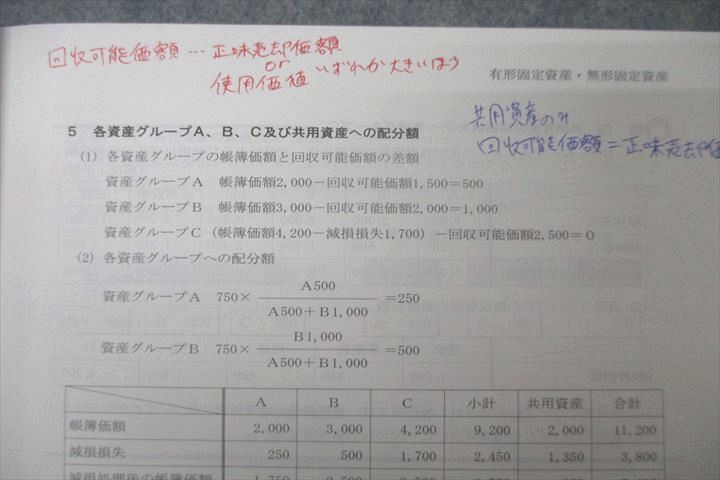 回収可能価額…正味売却価額
or
使用価値 いずれか大きいほう
有形固定資産・無形固定資産
共用資産のみ
回収可能価額=正味売却価
5 各資産グループA、B、C及び共用資産への配分額
(1) 各資産グループの帳簿価額と回収可能価額の差額
資産グループA 帳簿価額2,000-回収可能価額1,500=500
資産グループB 帳簿価額3,000-回収可能価額2,000=1,000
資産グループC (帳簿価額4,200-減損損失1,700) -回収可能価額2,500=0
(2) 各資産グループへの配分額
資産グループA 750× A500 / A500+B1,000 =250
資産グループB 750× B1,000 / A500+B1,000 =500
A B C 小計 共用資産 合計
帳簿価額 2,000 3,000 4,200 9,200 2,000 11,200
減損損失 250 500 1,700 2,450 1,350 3,800
減損処理後の帳簿価額 1,750